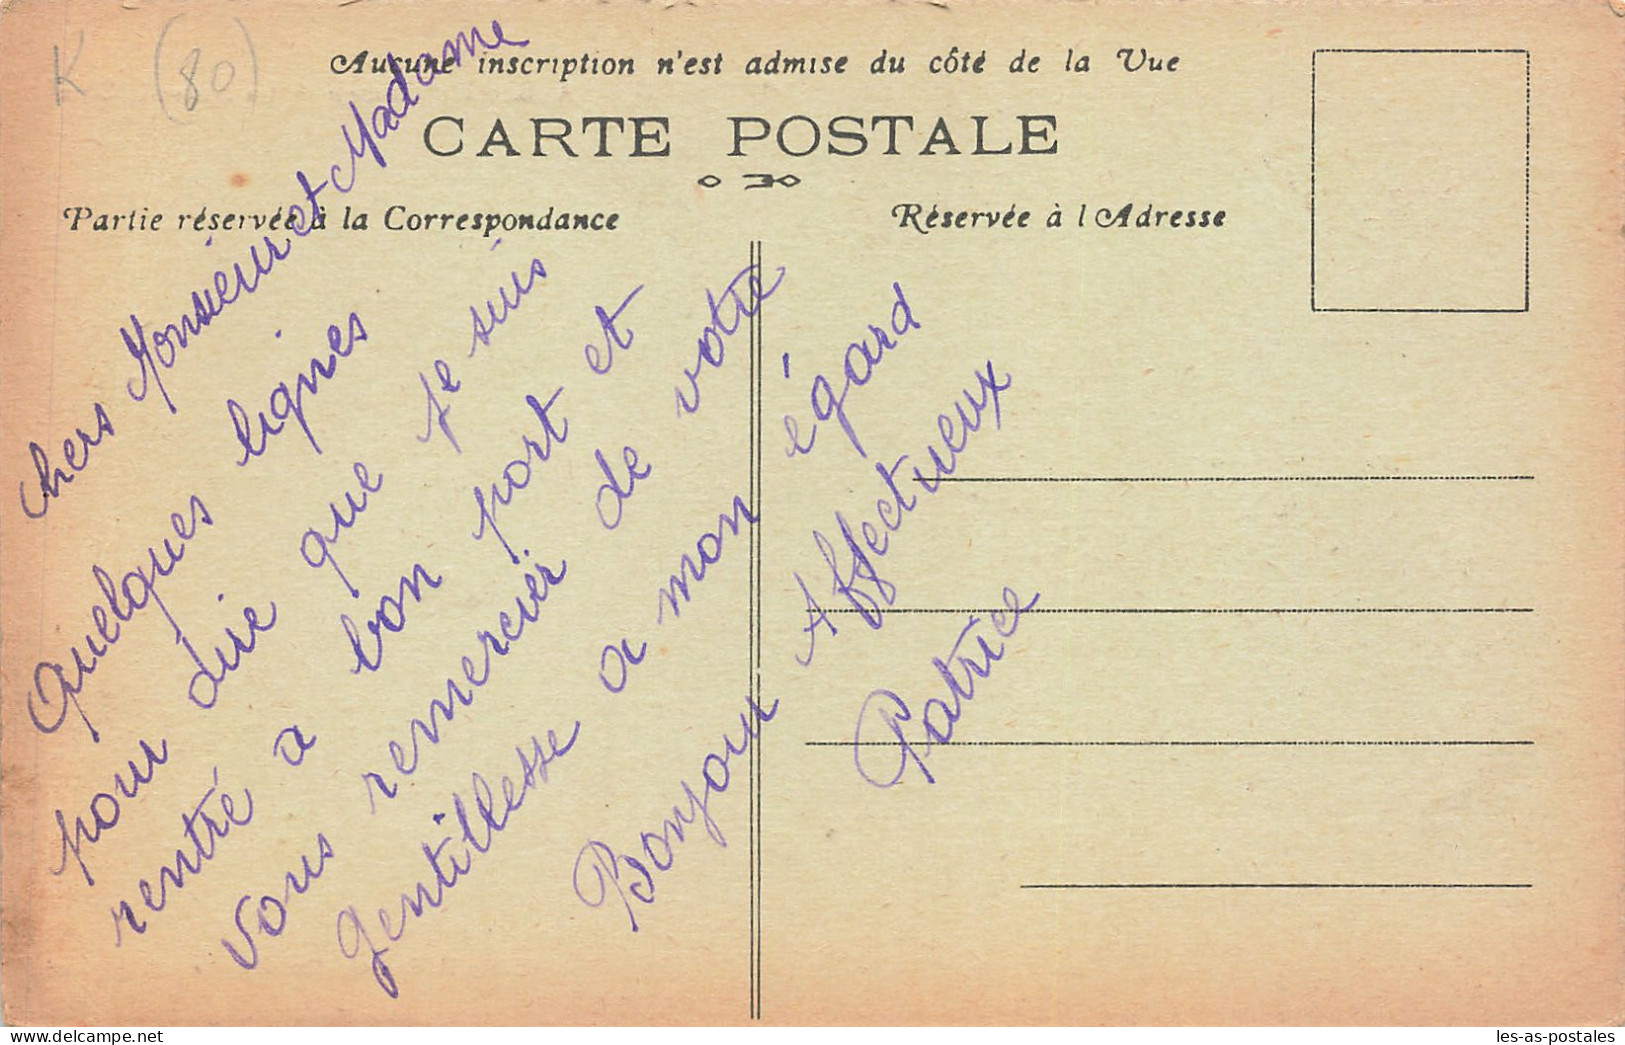 K (80)
Aucune inscription n'est admise du côté de la Vue
CARTE POSTALE
Partie réservée à la Correspondance
Réservée à l Adresse
chers Monsieur et Madame
Quelques lignes
pour dire que je suis
rentré a bon port et
vous remercier de votre
gentillesse a mon égard
Bonjour Affectueux
Patrice
www.delcampe.net
les-as-postales